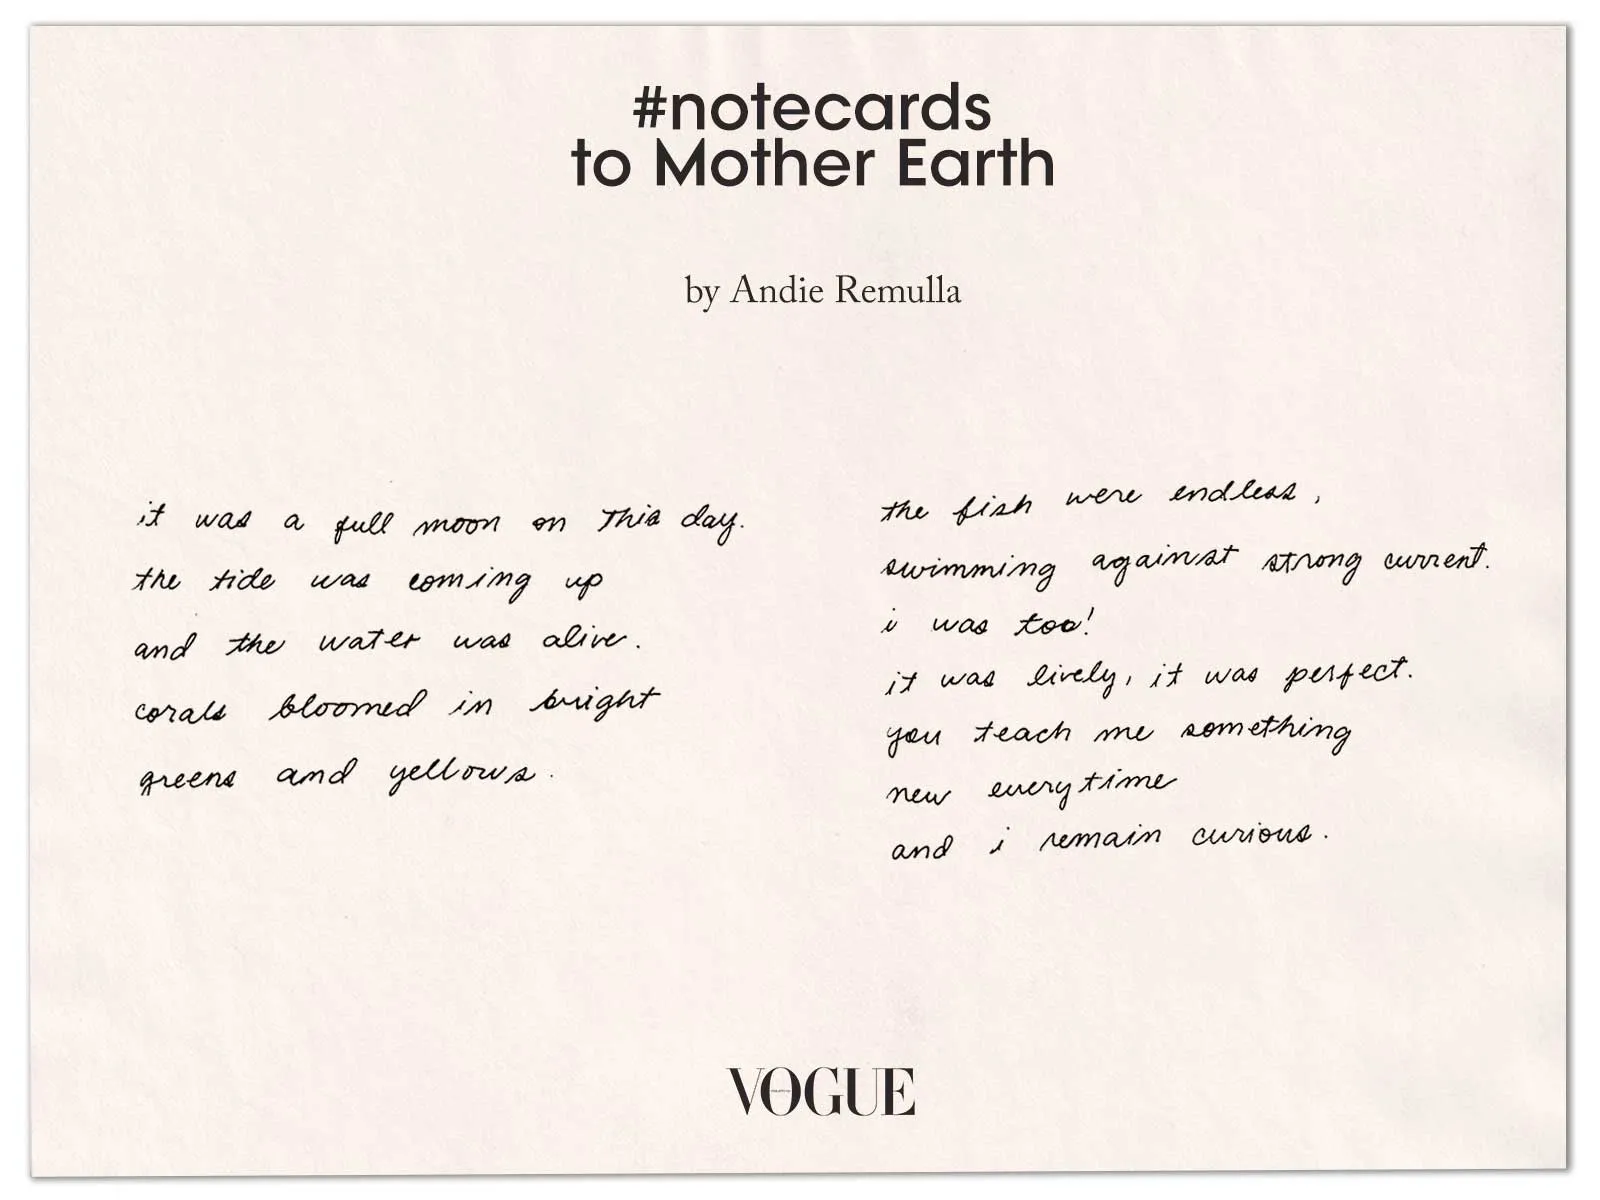 #notecards
to Mother Earth
by Andie Remulla
it was a full moon on this day.
the tide was coming up
and the water was alive.
corals bloomed in bright
greens and yellows.
the fish were endless,
swimming against strong current.
i was too!
it was lively, it was perfect.
you teach me something
new everytime
and i remain curious.
VOGUE